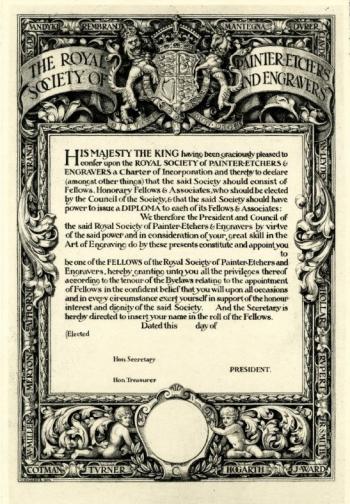 VANDYKE REMBRANDT MANTEGNA DVRER
THE ROYAL SOCIETY OF PAINTER-ETCHERS AND ENGRAVERS
HIS MAJESTY THE KING having been graciously pleased to
confer upon the ROYAL SOCIETY of PAINTER-ETCHERS &
ENGRAVERS a Charter of Incorporation and thereby to declare
(amongst other things) that the said Society should consist of
Fellows, Honorary Fellows & Associates, who should be elected
by the Council of the Society, & that the said Society should have
power to issue a DIPLOMA to each of its Fellows & Associates:
We therefore the President and Council of
the said Royal Society of Painter-Etchers & Engravers by virtue
of the said power and in consideration of your great skill in the
Art of Engraving do by these presents constitute and appoint you
to
be one of the FELLOWS of the Royal Society of Painter-Etchers and
Engravers, hereby granting unto you all the privileges thereof
according to the tenour of the Byelaws relating to the appointment
of Fellows in the confident belief that you will upon all occasions
and in every circumstance exert yourself in support of the honour
interest and dignity of the said Society. And the Secretary is
hereby directed to insert your name in the roll of the Fellows.
Dated this day of
(Elected
Hon Secretary
PRESIDENT.
Hon Treasurer
MERYON
RVPERT
COTMAN TVRNER C HOGARTH J·WARD